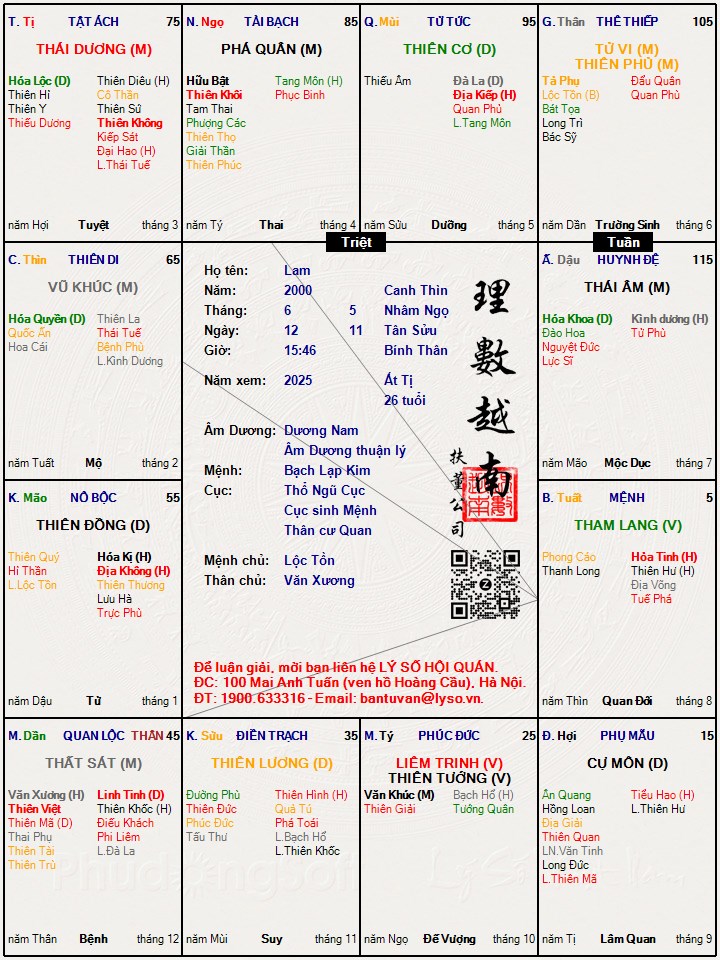 T. Tị TẬT ÁCH 75
THÁI DƯƠNG (M)
Hóa Lộc (Đ) Thiên Diêu (H)
Thiên Hỉ Cô Thần
Thiên Y Thiên Sứ
Thiếu Dương Thiên Không
Kiếp Sát
Đại Hao (H)
L.Thái Tuế
năm Hợi Tuyệt tháng 3
N. Ngọ TÀI BẠCH 85
PHÁ QUÂN (M)
Hữu Bật Tang Môn (H)
Thiên Khôi Phục Binh
Tam Thai
Phượng Các
Thiên Thọ
Giải Thần
Thiên Phúc
năm Tý Thai tháng 4
Q. Mùi TỬ TỨC 95
THIÊN CƠ (Đ)
Thiếu Âm Đà La (Đ)
Địa Kiếp (H)
Quan Phủ
L.Tang Môn
năm Sửu Dưỡng tháng 5
G. Thân THÊ THIẾP 105
TỬ VI (M)
THIÊN PHỦ (M)
Tả Phụ Đẩu Quân
Lộc Tồn (B) Quan Phủ
Bát Tọa
Long Trì
Bác Sỹ
năm Dần Trường Sinh tháng 6
Triệt
Tuần
C. Thìn THIÊN DI 65
VŨ KHÚC (M)
Hóa Quyền (Đ) Thiên La
Quốc Ấn Thái Tuế
Hoa Cái Bệnh Phù
L.Kình Dương
năm Tuất Mộ tháng 2
Họ tên: Lam
Năm: 2000 Canh Thìn
Tháng: 6 5 Nhâm Ngọ
Ngày: 12 11 Tân Sửu
Giờ: 15:46 Bính Thân
Năm xem: 2025 Ất Tị
26 tuổi
Âm Dương: Dương Nam
Âm Dương thuận lý
Mệnh: Bạch Lạp Kim
Cục: Thổ Ngũ Cục
Cục sinh Mệnh
Thân cư Quan
Mệnh chủ: Lộc Tồn
Thân chủ: Văn Xương
理
數
越
南
扶
董
公
司
Để luận giải, mời bạn liên hệ LÝ SỐ HỘI QUÁN.
ĐC: 100 Mai Anh Tuấn (ven hồ Hoàng Cầu), Hà Nội.
ĐT: 1900.633316 - Email: bantuvan@lyso.vn.
Ấ. Dậu HUYNH ĐỆ 115
THÁI ÂM (M)
Hóa Khoa (Đ) Kình dương (H)
Đào Hoa Tử Phù
Nguyệt Đức
Lực Sĩ
năm Mão Mộc Dục tháng 7
K. Mão NÔ BỘC 55
THIÊN ĐỒNG (Đ)
Thiên Quý Hóa Kị (H)
Hỉ Thần Địa Không (H)
L.Lộc Tồn Thiên Thương
Lưu Hà
Trực Phù
năm Dậu Tử tháng 1
B. Tuất MỆNH 5
THAM LANG (V)
Phong Cáo Hỏa Tinh (H)
Thanh Long Thiên Hư (H)
Địa Võng
Tuế Phá
năm Thìn Quan Đới tháng 8
M. Dần QUAN LỘC THÂN 45
THẤT SÁT (M)
Văn Xương (H) Linh Tinh (Đ)
Thiên Việt Thiên Khốc (H)
Thiên Mã (Đ) Điếu Khách
Thai Phụ Phi Liêm
Thiên Tài L.Đà La
Thiên Trù
năm Thân Bệnh tháng 12
K. Sửu ĐIỀN TRẠCH 35
THIÊN LƯƠNG (Đ)
Đường Phù Thiên Hình (H)
Thiên Đức Quả Tú
Phúc Đức Phá Toái
Tấu Thư L.Bạch Hổ
L.Thiên Khốc
năm Mùi Suy tháng 11
M. Tý PHÚC ĐỨC 25
LIÊM TRINH (V)
THIÊN TƯỚNG (V)
Văn Khúc (M) Bạch Hổ (H)
Thiên Giải Tướng Quân
năm Ngọ Đế Vượng tháng 10
Đ. Hợi PHỤ MẪU 15
CỰ MÔN (Đ)
Ân Quang Tiểu Hao (H)
Hồng Loan L.Thiên Hư
Địa Giải
Thiên Quan
LN.Văn Tinh
Long Đức
L.Thiên Mã
năm Tị Lâm Quan tháng 9